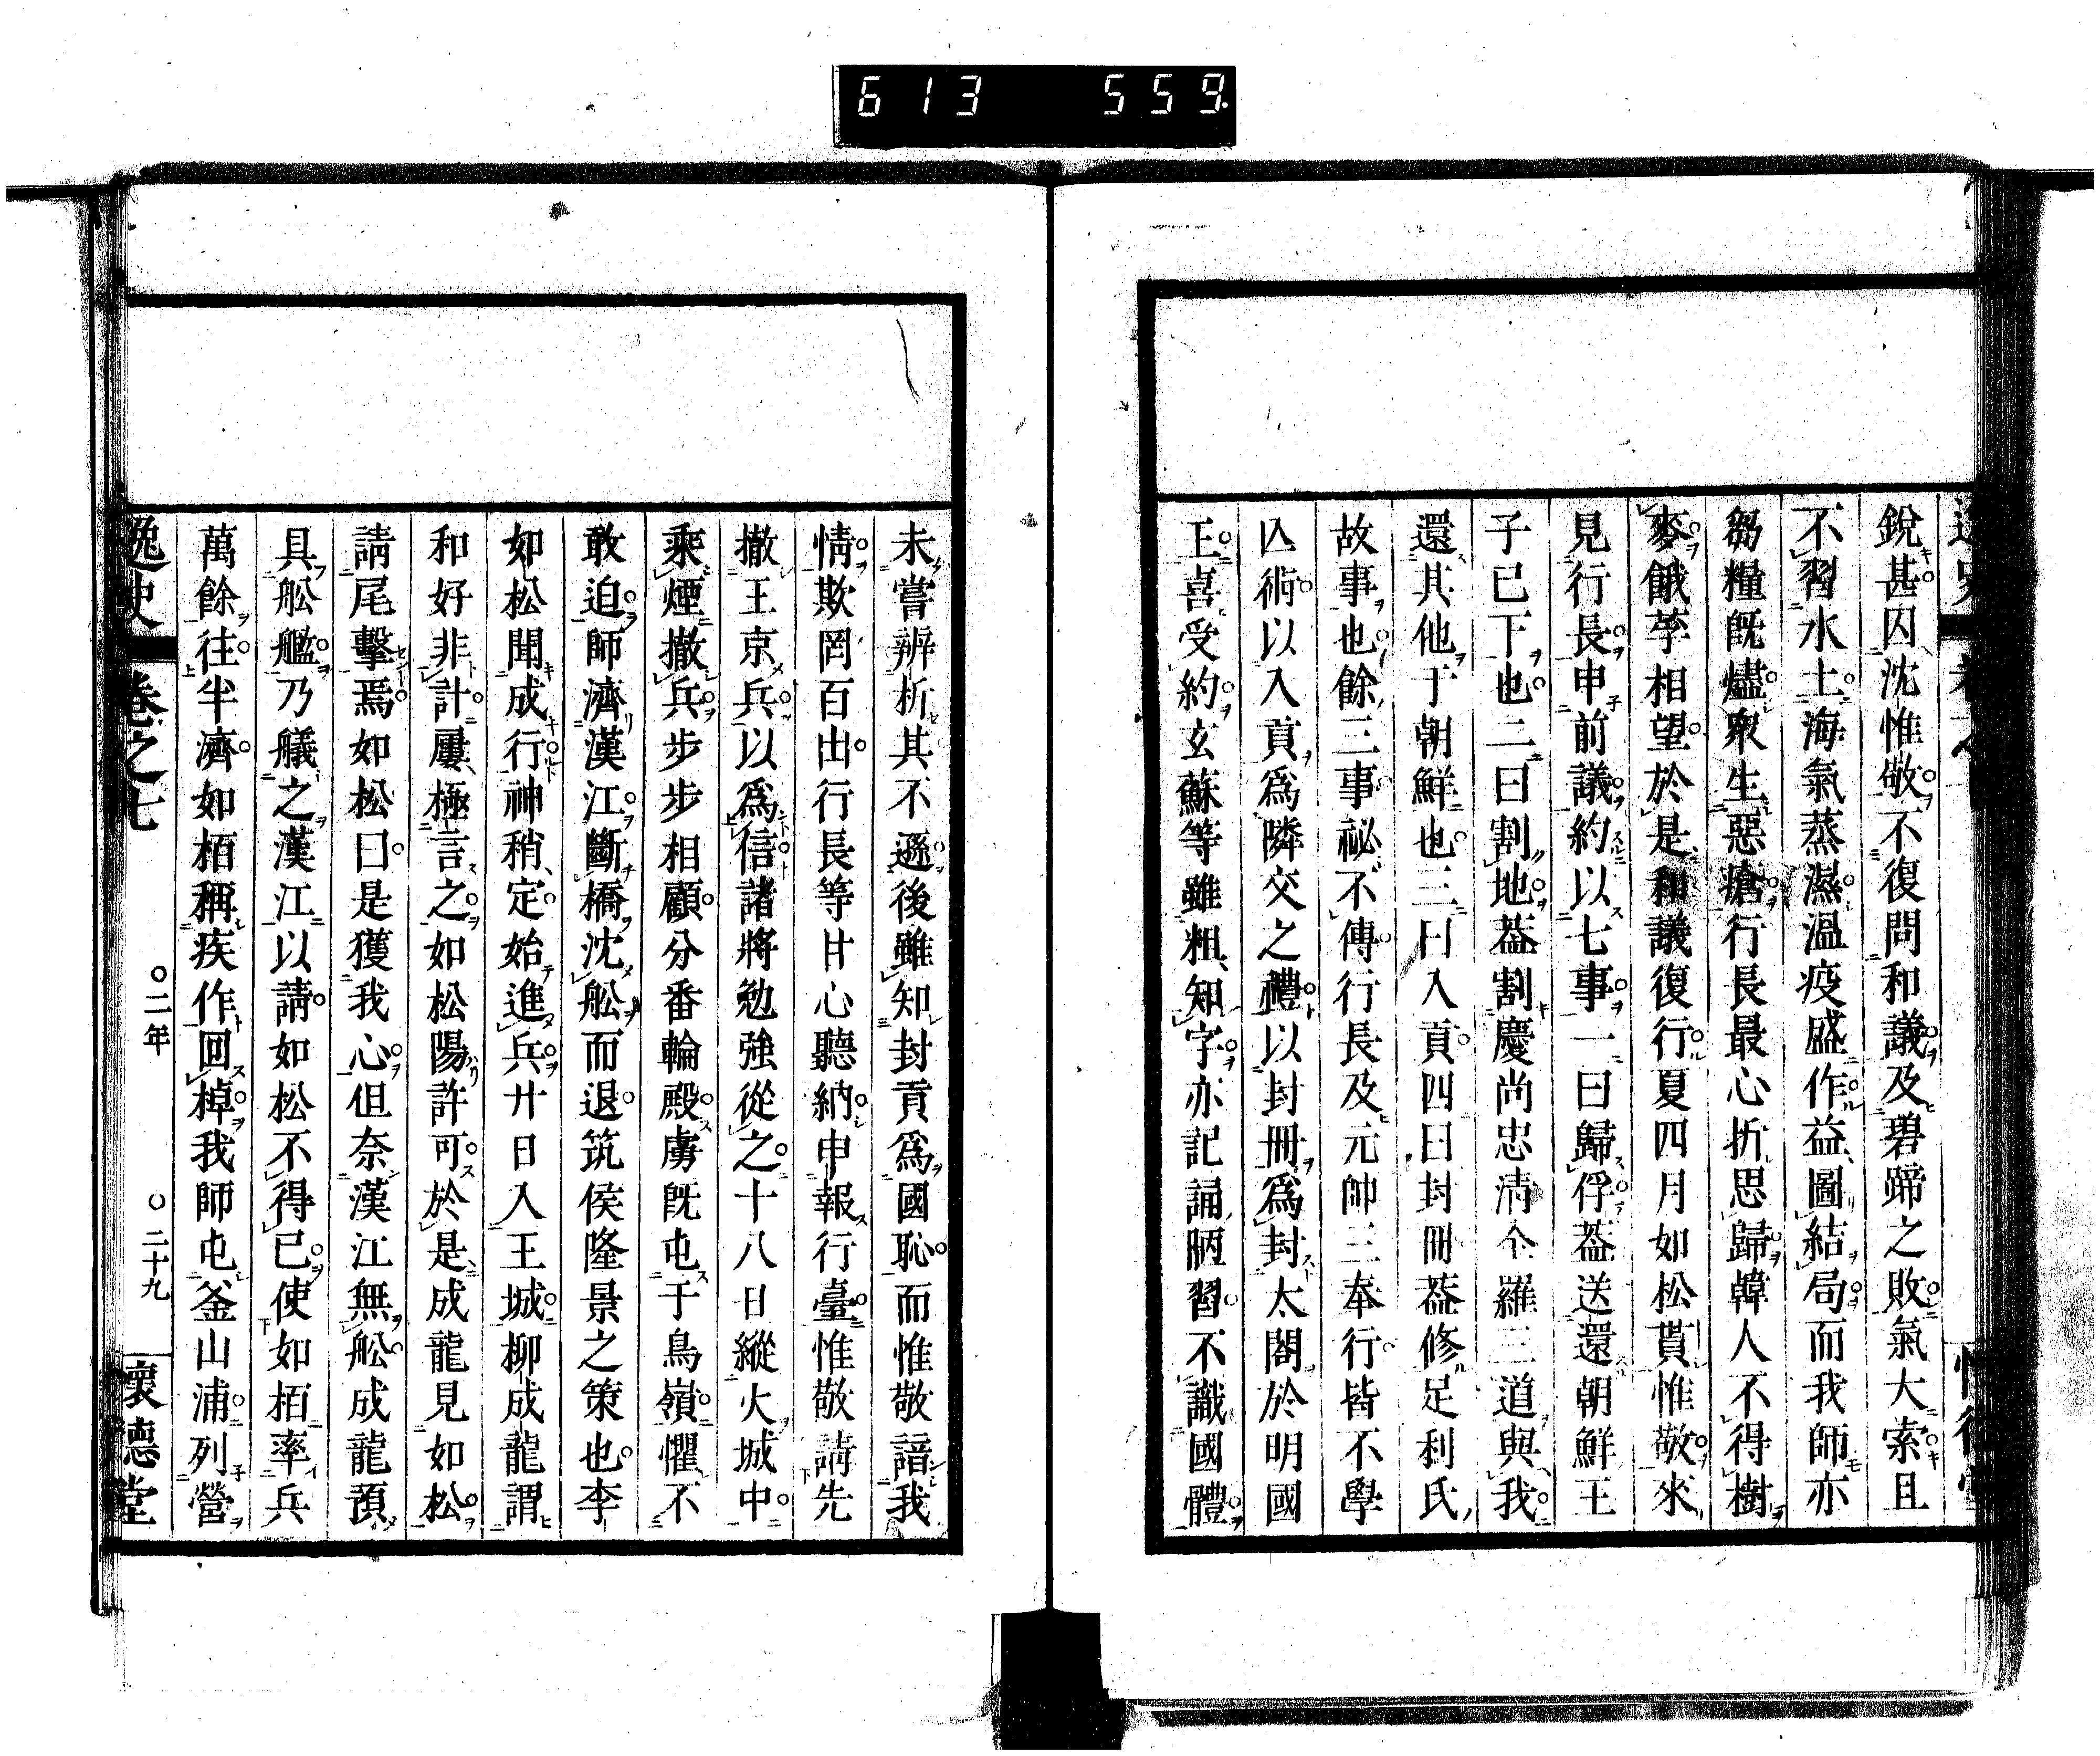 613 559
銳甚囚沈惟敬不復問和議及碧蹄之敗氣大索且
不習水土海氣蒸濕溫疫盛作益圖結局而我師亦
芻糧既燼衆生惡瘡行長最心折思歸韓人不得樹
麥餓莩相望於是和議復行夏四月如松貰惟敬來
見行長申前議約以七事一曰歸俘葢送還朝鮮王
子已下也二曰割地葢割慶尚忠清全羅三道與我
還其他于朝鮮也三曰入貢四曰封冊葢修足利氏
故事也餘三事祕不傳行長及元帥三奉行皆不學
亾術以入貢爲隣交之禮以封冊爲封太閤於明國
王喜受約玄蘇等雖粗知字亦記誦陋習不識國體
未嘗辨析其不遜後雖知封貢爲國恥而惟敬諳我
情欺罔百出行長等甘心聽納申報行臺惟敬請先
撤王京兵以爲信諸將勉強從之十八日縱火城中
乘煙撤兵步步相顧分番輪殿虜既屯于鳥嶺懼不
敢迫師濟漢江斷橋沈舩而退筑侯隆景之策也李
如松聞成行神稍定始進兵廿日入王城柳成龍謂
和好非計屢極言之如松陽許可於是成龍見如松
請尾擊焉如松曰是獲我心但奈漢江無舩成龍預
具舩艦乃艤之漢江以請如松不得已使如栢率兵
萬餘往半濟如栢稱疾作回棹我師屯釜山浦列營
逸史 卷之七 〇二年 〇二十九 懷德堂